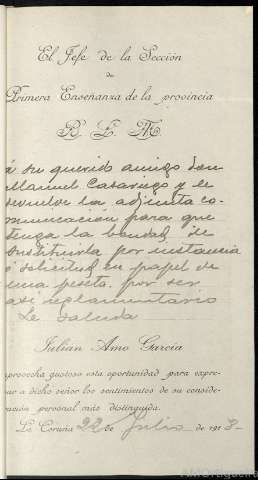 El Jefe de la Sección
de
Primera Enseñanza de la provincia
B. L. M.
á su querido amigo don
Manuel Casariego y le
devuelve la adjunta co-
municación para que
tenga la bondad de
sustituirla por instancia
ó solicitud en papel de
una peseta por ser
así reglamentario
Le saluda
Julian Amo Garcia
aprovecha gustoso esta oportunidad para expre-
sar a dicho señor los sentimientos de su conside-
ración personal más distinguida.
La Coruña 22 de Julio de 1913.